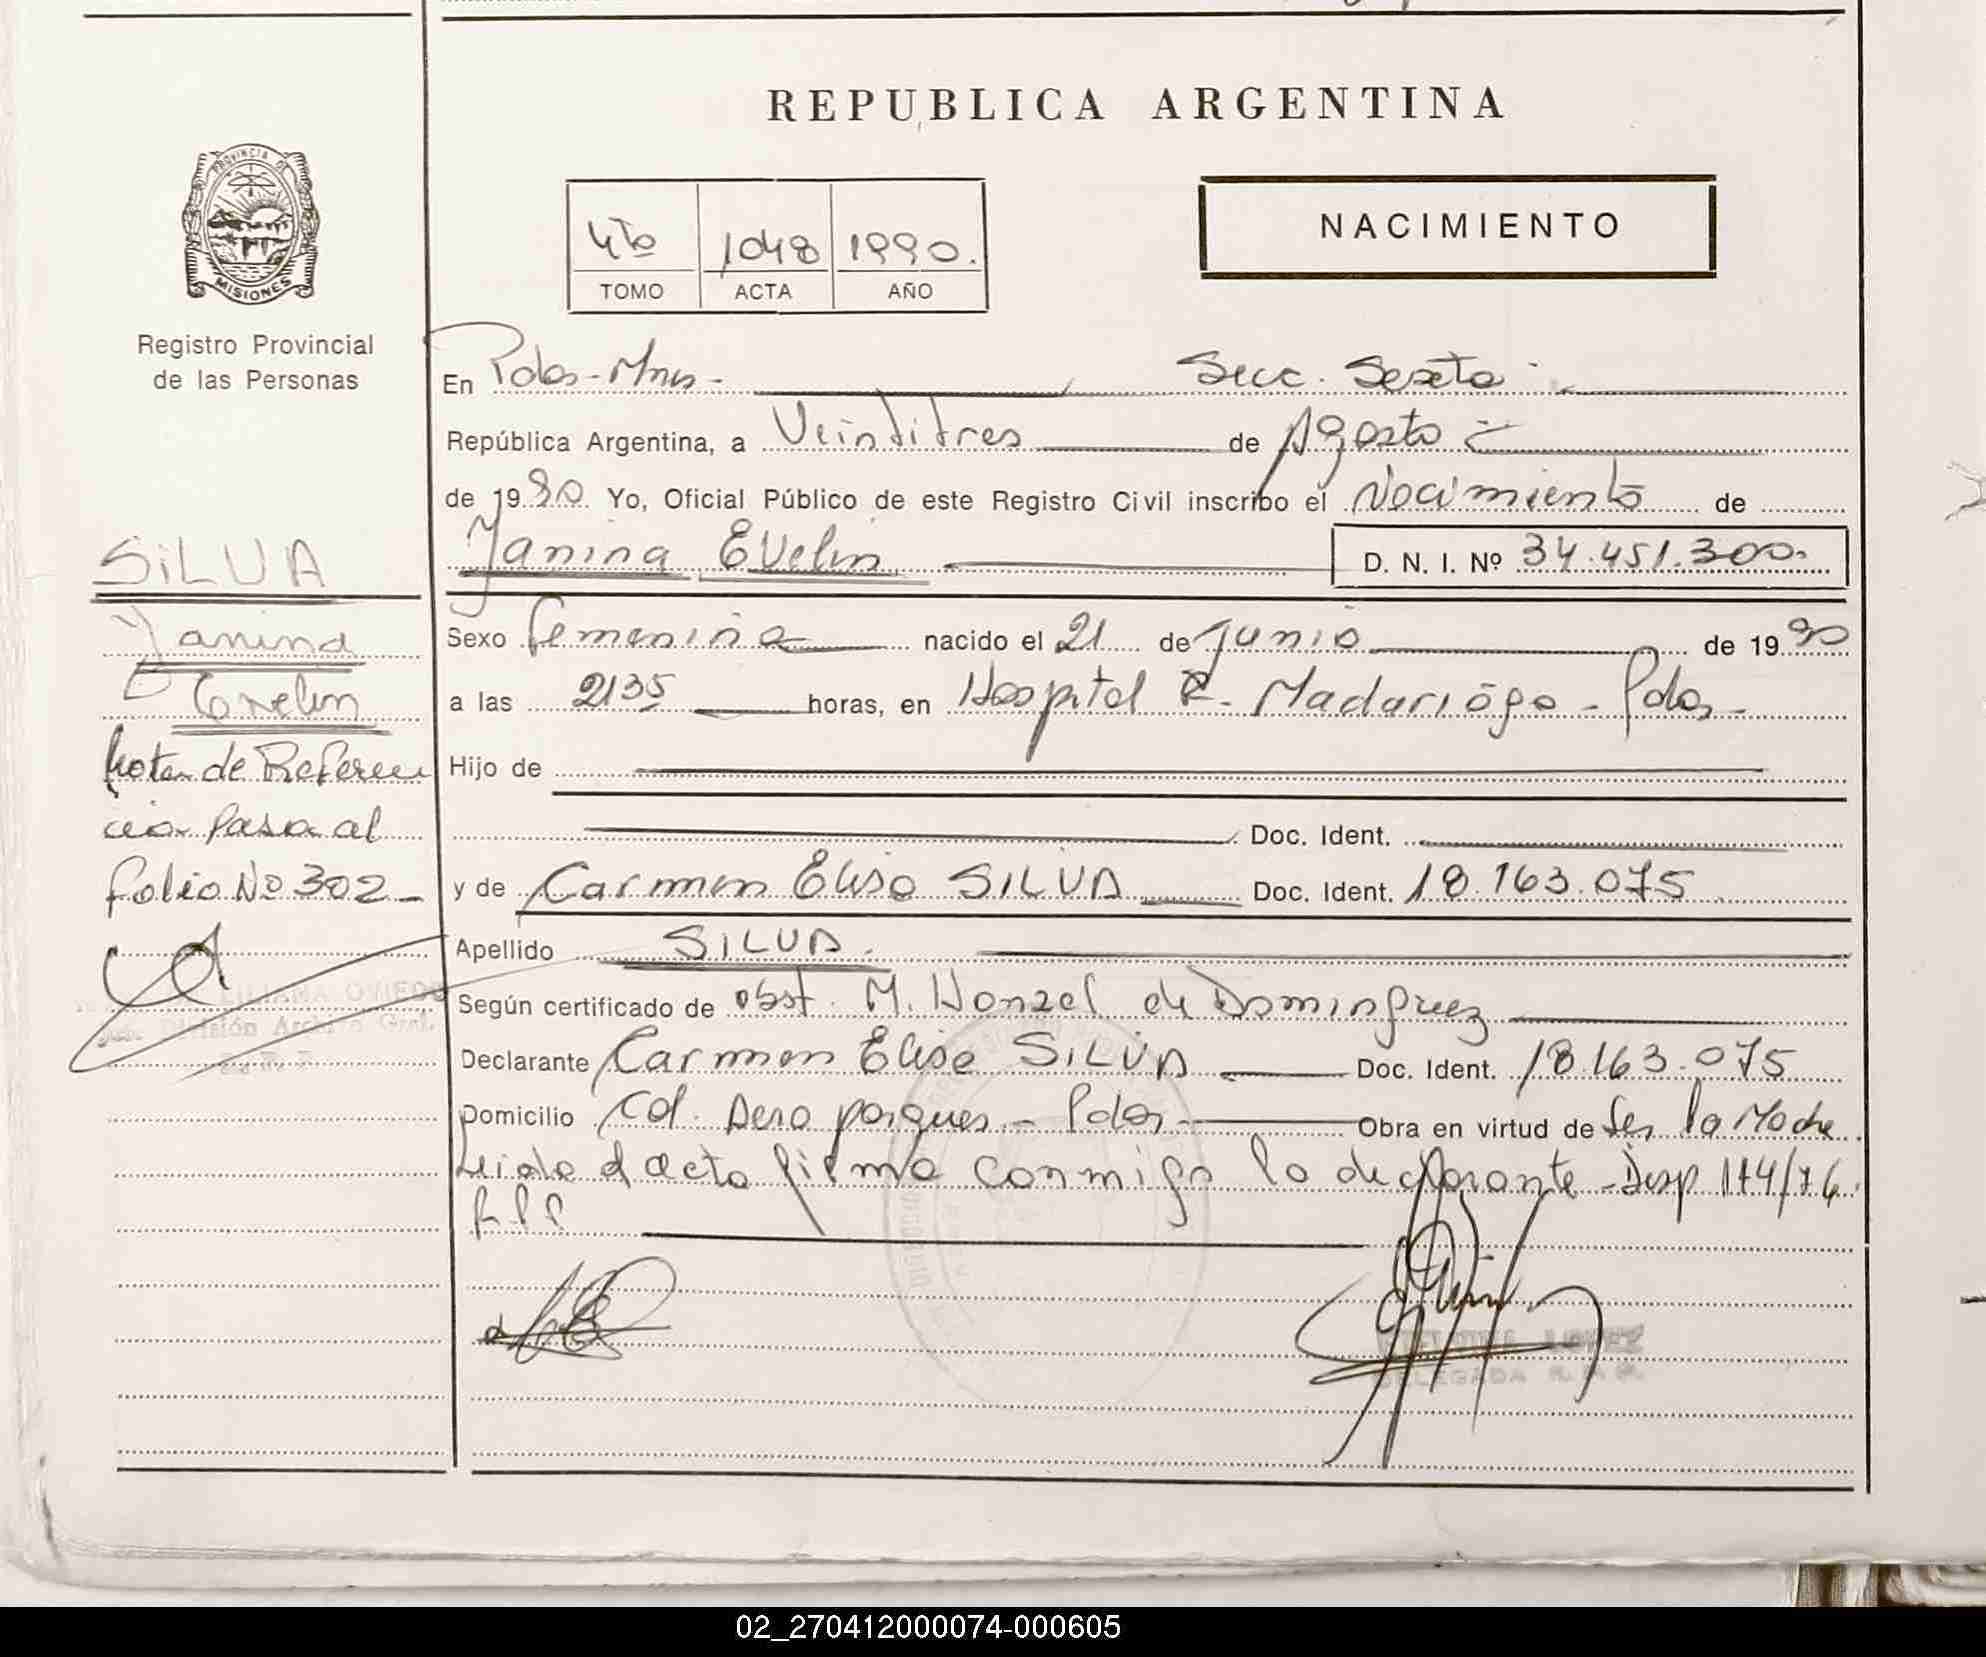 REPUBLICA ARGENTINA
PROVINCIA DE
MISIONES
Registro Provincial
de las Personas
4to 1048 1990.
TOMO ACTA AÑO
NACIMIENTO
En Pdas-Mnes- Secc. Sexta
República Argentina, a Veintitres de Agosto
de 1990. Yo, Oficial Público de este Registro Civil inscribo el Nacimiento de
Yanina Evelin D. N. I. Nº 34.451.300.
Sexo femenina nacido el 21 de Junio de 1990
a las 2135 horas, en Hospital R. Madariaga - Pdas-
Hijo de
Doc. Ident.
y de Carmen Elisa SILVA Doc. Ident. 18.163.075
Apellido SILVA.
Según certificado de obst. M. de Dominguez
Declarante Carmen Elisa SILVA Doc. Ident. 18.163.075
Domicilio Col. Aero parques - Pdas- Obra en virtud de Ser la Madre.
Leida el acta firma conmigo la declarante - Disp 174/76.
R.P.P.
DELEGADA R. P. P.
SILVA
Yanina
Evelin
Nota de Referen
cia Pasa al
folio Nº 302-
LILIANA OVIEDO
División Archivo Gral.
02_270412000074-000605